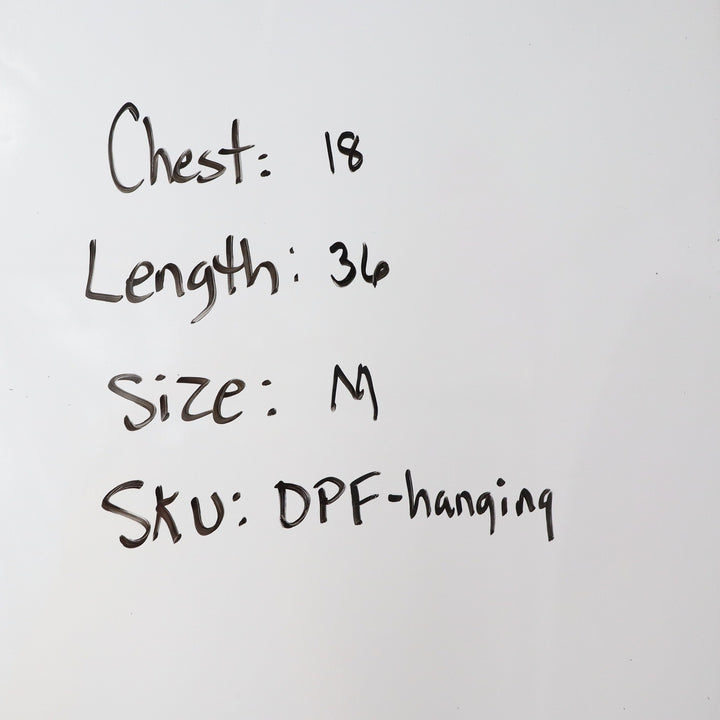 Chest: 18
Length: 36
Size: M
SKU: DPF-hanging